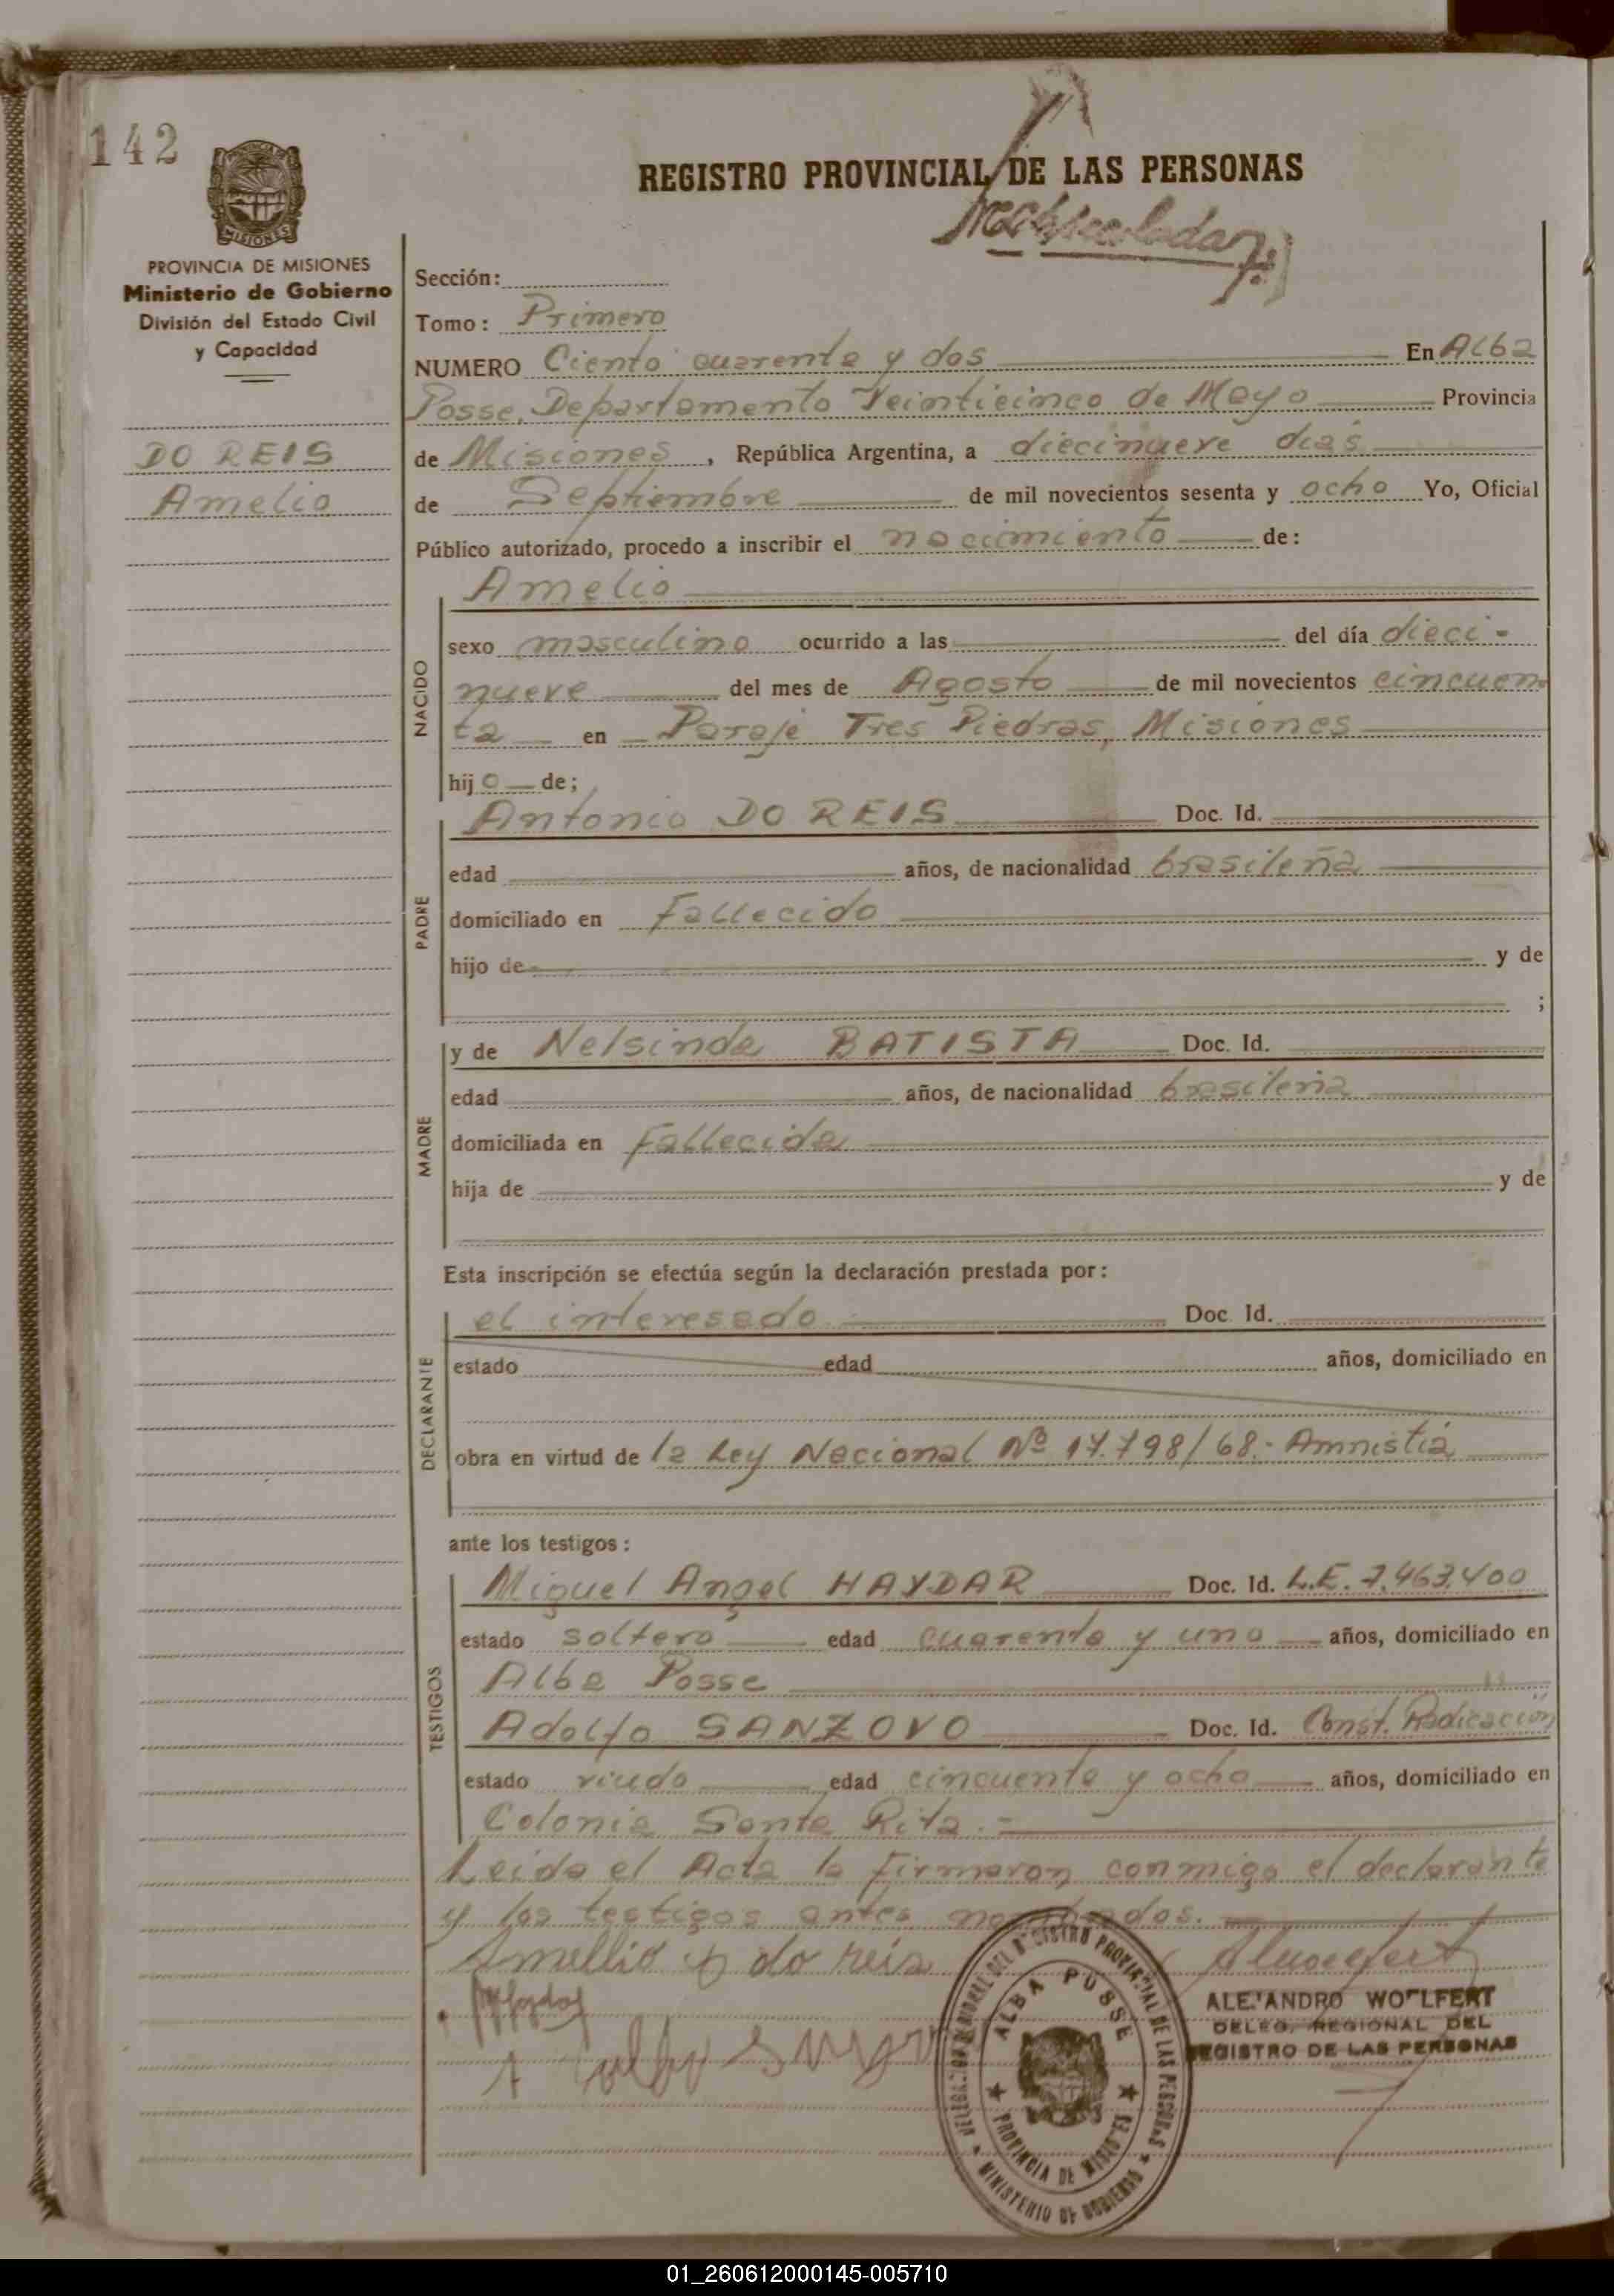 142
REGISTRO PROVINCIAL DE LAS PERSONAS
MISIONES
PROVINCIA DE MISIONES
Ministerio de Gobierno
División del Estado Civil
y Capacidad
DO REIS
Amelio
Sección:
Tomo: Primero
NUMERO Ciento cuarenta y dos En Alba
Posse, Departamento Veinticinco de Mayo Provincia
de Misiones, República Argentina, a diecinueve días
de Septiembre de mil novecientos sesenta y ocho Yo, Oficial
Público autorizado, procedo a inscribir el nacimiento de:
Amelio
NACIDO
sexo masculino ocurrido a las del día dieci-
nueve del mes de Agosto de mil novecientos cincuen
ta en Paraje Tres Piedras, Misiones
hijo de;
PADRE
Antonio DO REIS Doc. Id.
edad años, de nacionalidad brasileña
domiciliado en Fallecido
hijo de y de
;
MADRE
y de Nelsinda BATISTA Doc. Id.
edad años, de nacionalidad brasileña
domiciliada en Fallecida
hija de y de
Esta inscripción se efectúa según la declaración prestada por:
DECLARANTE
el interesado Doc. Id.
estado edad años, domiciliado en
obra en virtud de la Ley Nacional Nº 17.798/68.- Amnistía
ante los testigos:
TESTIGOS
Miguel Angel HAYDAR Doc. Id. L.E. 7.463.400
estado soltero edad cuarenta y uno años, domiciliado en
Alba Posse
Adolfo SANZOVO Doc. Id. Const. Radicación
estado viudo edad cincuenta y ocho años, domiciliado en
Colonia Santa Rita.-
Leida el Acta la firmaron conmigo el declarante
y los testigos antes nombrados.
Amellio do reis
ALEJANDRO WOLFERT
DELEG. REGIONAL DEL
REGISTRO DE LAS PERSONAS
DELEGACION REGIONAL DEL REGISTRO PROVINCIAL DE LAS PERSONAS
MINISTERIO DE GOBIERNO
ALBA POSSE
PROVINCIA DE MISIONES
01_260612000145-005710